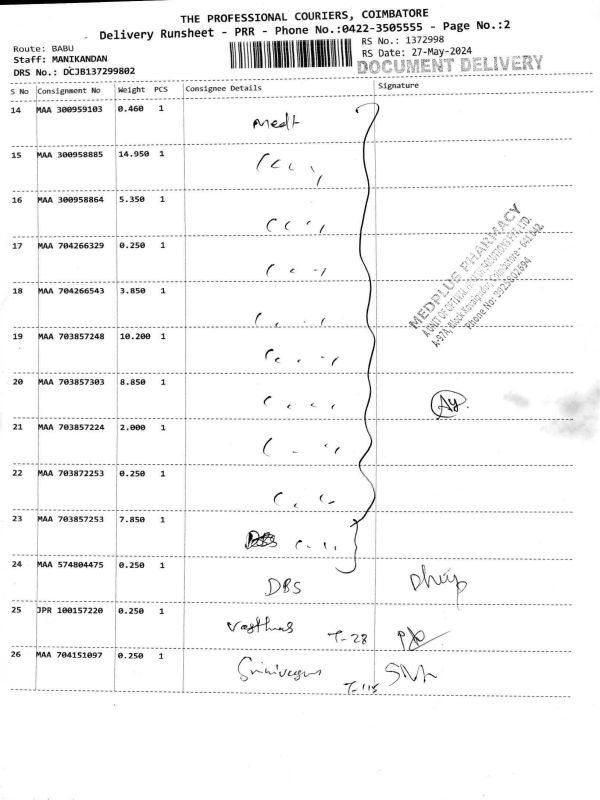 THE PROFESSIONAL COURIERS, COIMBATORE
Delivery Runsheet - PRR - Phone No.:0422-3505555 - Page No.:2
Route: BABU
RS No.: 1372998
Staff: MANIKANDAN
RS Date: 27-May-2024
DRS No.: DCJB137299802
DOCUMENT DELIVERY
S No Consignment No Weight PCS Consignee Details Signature
14 MAA 300959103 0.460 1
Medt
15 MAA 300958885 14.950 1
16 MAA 300958864 5.350 1
17 MAA 704266329 0.250 1
18 MAA 704266543 3.850 1
MEDPLUS PHARMACY
A UNIT OF OPTIVAL HEALTH SOLUTIONS PVT. LTD.
Coimbatore - 641 042
Phone No:
19 MAA 703857248 10.200 1
20 MAA 703857303 8.850 1
21 MAA 703857224 2.000 1
22 MAA 703872253 0.250 1
23 MAA 703857253 7.850 1
24 MAA 574804475 0.250 1
DBS
25 JPR 100157220 0.250 1
T-28
26 MAA 704151097 0.250 1
T-115